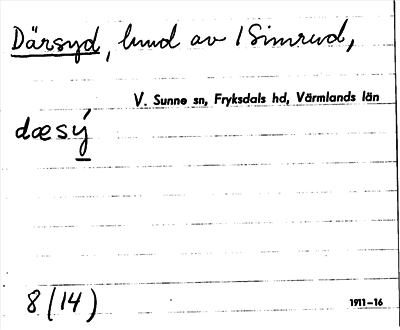 Därsyd, lund av 1 Simrud,
V. Sunne sn, Fryksdals hd, Värmlands län
dæsý
8 (14)
1911–16